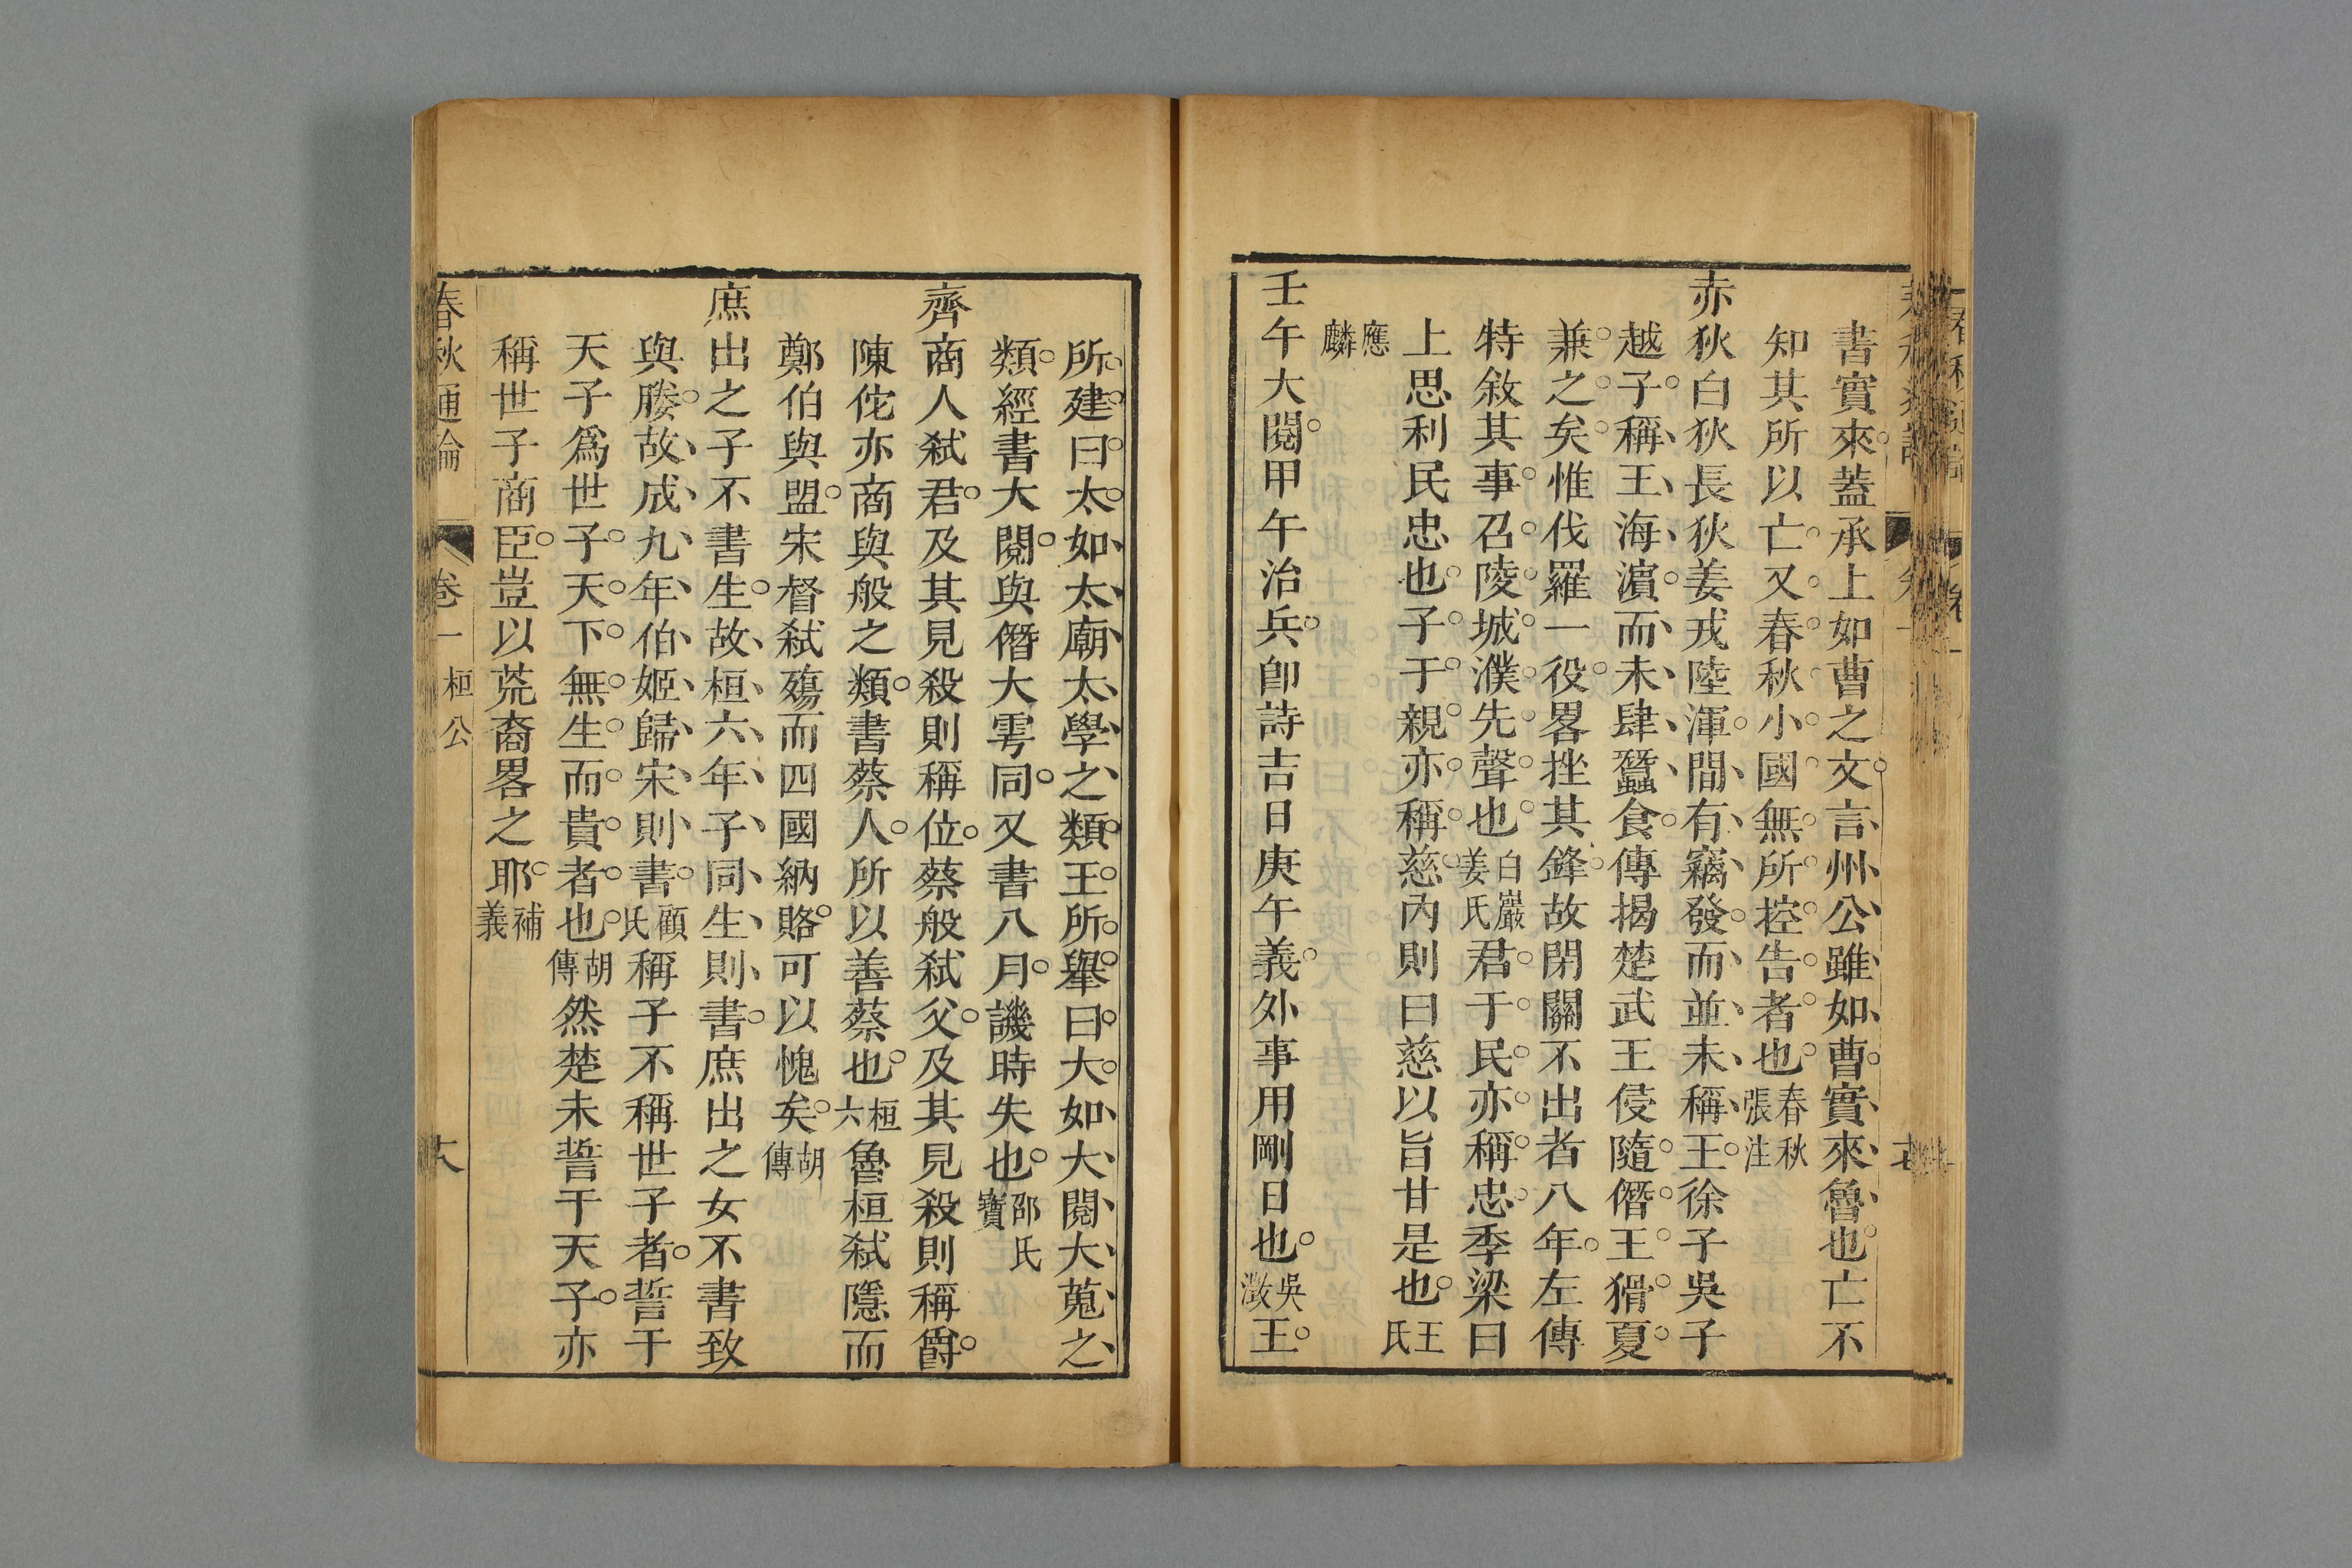 書實來蓋承上如曹之文言州公雖如曹實來魯也亡不
知其所以亡又春秋小國無所控告者也春秋張注
赤狄白狄長狄姜戎陸渾間有竊發而並未稱王徐子吳子
越子稱王海濵而未肆蠶食傳揭楚武王侵隨僭王猾夏
兼之矣惟伐羅一役畧挫其鋒故閉關不出者八年左傳
特敘其事召陵城濮先聲也白巖姜氏君于民亦稱忠季梁曰
上思利民忠也子于親亦稱慈內則曰慈以旨甘是也王氏
應麟
壬午大閱甲午治兵卽詩吉日庚午義外事用剛日也吳澂王
所建曰太如太廟太學之類王所舉曰大如大閱大蒐之
類經書大閱與僭大雩同又書八月譏時失也邵氏寶
齊商人弑君及其見殺則稱位蔡般弑父及其見殺則稱爵
陳佗亦商與般之類書蔡人所以善蔡也桓六魯桓弑隱而
鄭伯與盟宋督弑殤而四國納賂可以愧矣胡傳
庶出之子不書生故桓六年子同生則書庶出之女不書致
與媵故成九年伯姬歸宋則書顧氏稱子不稱世子者誓于
天子爲世子天下無生而貴者也胡傳然楚未誓于天子亦
稱世子商臣豈以荒裔畧之耶補義
春秋通論 卷一 桓公